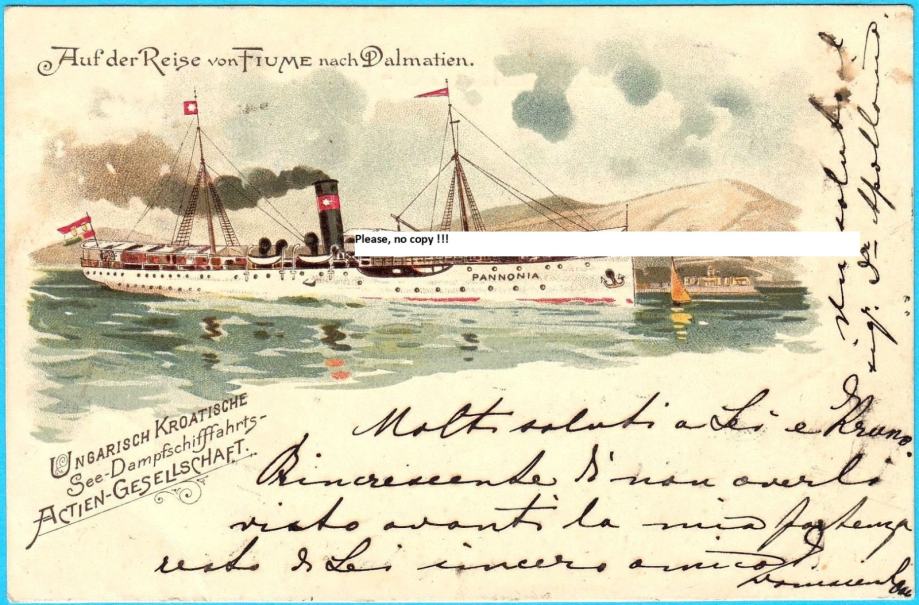 Auf der Reise von FIUME nach Dalmatien.
Please, no copy !!!
PANNONIA
UNGARISCH KROATISCHE
See-Dampfschifffahrts-
ACTIEN-GESELLSCHAFT.
Molti saluti a Lei e Bruno.
Rincrescente di non averli
visto avanti la mia partenza
resto di Lei sincero amico